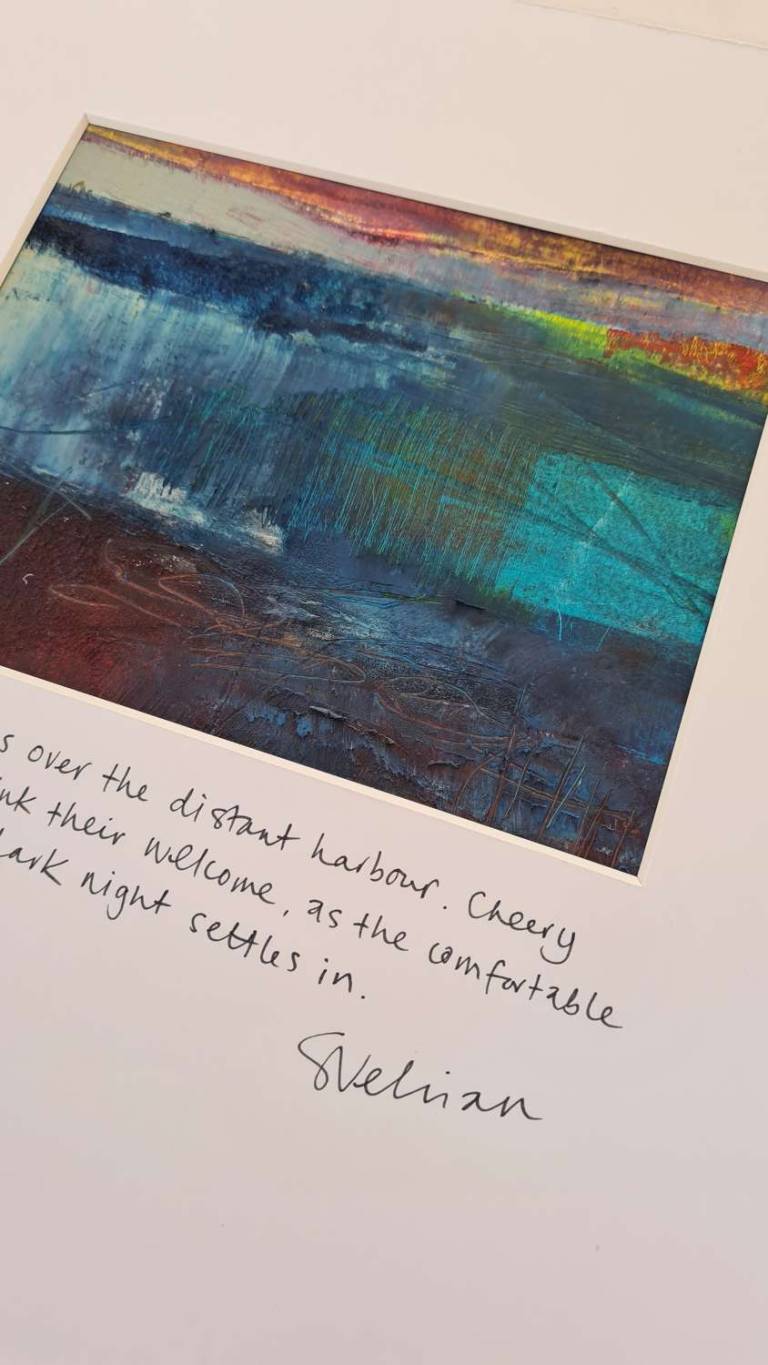 s over the distant harbour. Cheery
nk their welcome, as the comfortable
dark night settles in.
SVelhan